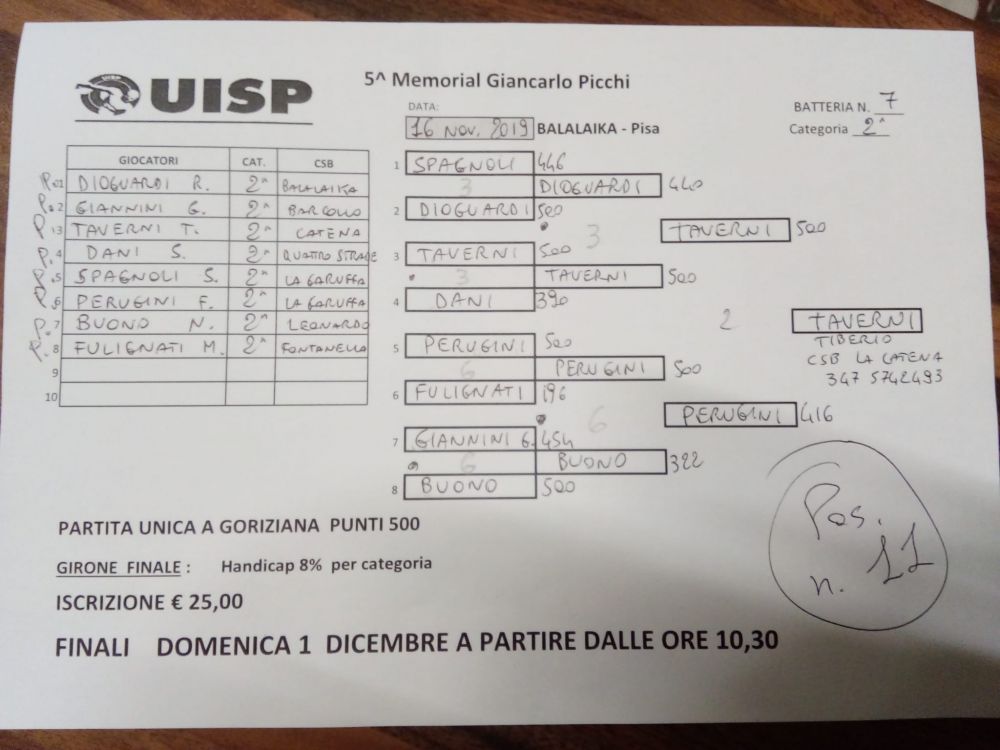 UISP
5^ Memorial Giancarlo Picchi
DATA:
16 NOV. 2019 BALALAIKA - Pisa
BATTERIA N. 7
Categoria 2^
GIOCATORI CAT. CSB
P. 1 DIOGUARDI R. 2^ BALALAIKA
P. 2 GIANNINI G. 2^ BARGOLLO
P. 3 TAVERNI T. 2^ CATENA
P. 4 DANI S. 2^ QUATTRO STRADE
P. 5 SPAGNOLI S. 2^ LA GARUFFA
P. 6 PERUGINI F. 2^ LA GARUFFA
P. 7 BUONO N. 2^ LEONARDO
P. 8 FULIGNATI M. 2^ FONTANELLA
9
10
1 SPAGNOLI 446
3 DIOGUARDI 440
2 DIOGUARDI 500
3 TAVERNI 500
3 TAVERNI 500
3 TAVERNI 500
4 DANI 390
2 TAVERNI
TIBERIO
CSB LA CATENA
347 5742493
5 PERUGINI 500
6 PERUGINI 500
6 FULIGNATI 196
6 PERUGINI 416
7 GIANNINI G. 454
6 BUONO 322
8 BUONO 500
Pos.
n. 11
PARTITA UNICA A GORIZIANA PUNTI 500
GIRONE FINALE : Handicap 8% per categoria
ISCRIZIONE € 25,00
FINALI DOMENICA 1 DICEMBRE A PARTIRE DALLE ORE 10,30